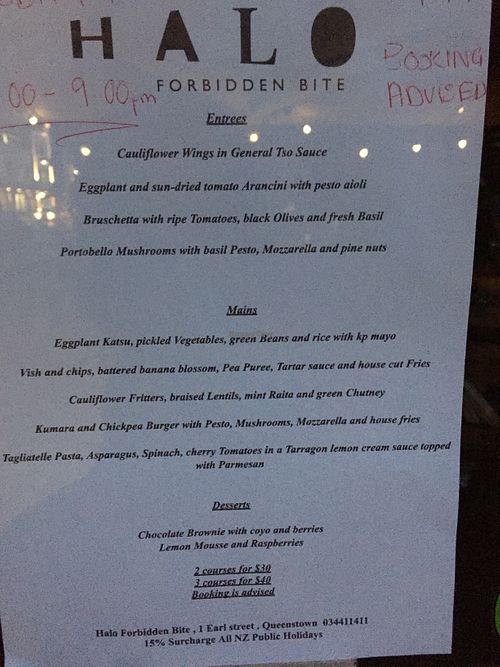 HALO
FORBIDDEN BITE
BOOKING
ADVISED
00 - 9 00pm
Entrees
Cauliflower Wings in General Tso Sauce
Eggplant and sun-dried tomato Arancini with pesto aioli
Bruschetta with ripe Tomatoes, black Olives and fresh Basil
Portobello Mushrooms with basil Pesto, Mozzarella and pine nuts
Mains
Eggplant Katsu, pickled Vegetables, green Beans and rice with kp mayo
Vish and chips, battered banana blossom, Pea Puree, Tartar sauce and house cut Fries
Cauliflower Fritters, braised Lentils, mint Raita and green Chutney
Kumara and Chickpea Burger with Pesto, Mushrooms, Mozzarella and house fries
Tagliatelle Pasta, Asparagus, Spinach, cherry Tomatoes in a Tarragon lemon cream sauce topped
with Parmesan
Desserts
Chocolate Brownie with coyo and berries
Lemon Mousse and Raspberries
2 courses for $30
3 courses for $40
Booking is advised
Halo Forbidden Bite , 1 Earl street , Queenstown 034411411
15% Surcharge All NZ Public Holidays